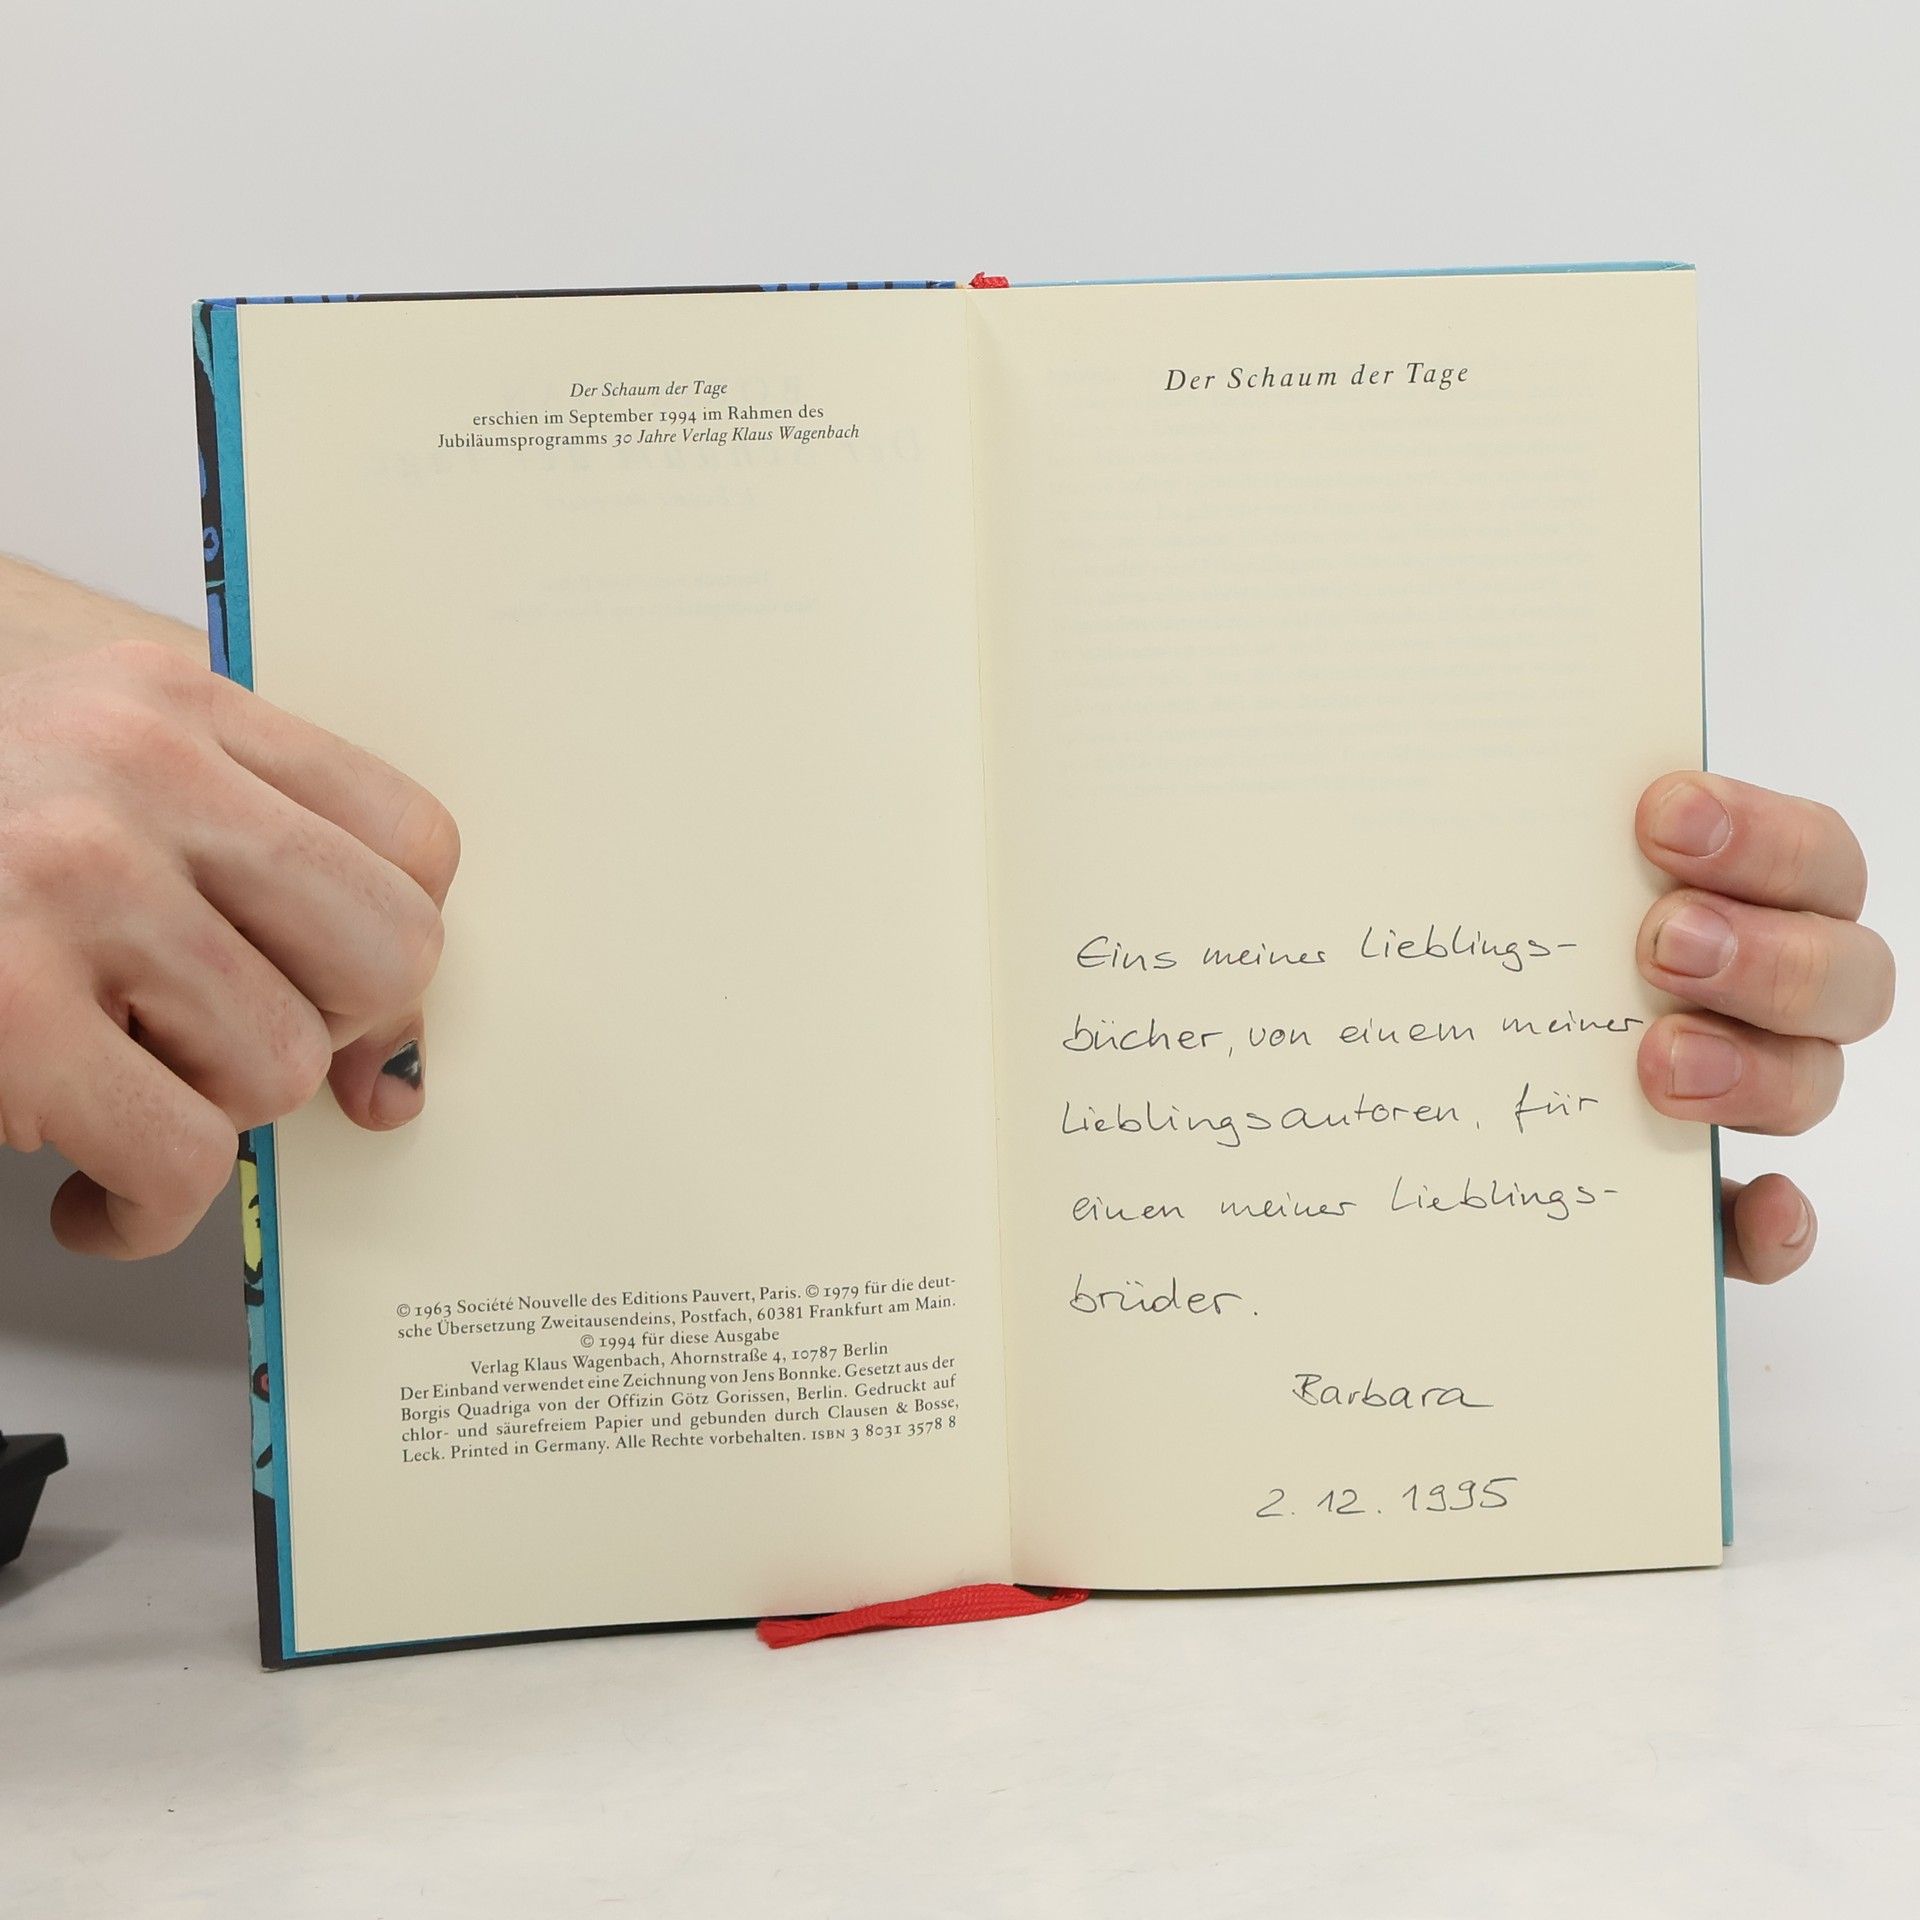 Der Schaum der Tage
erschien im September 1994 im Rahmen des
Jubiläumsprogramms 30 Jahre Verlag Klaus Wagenbach
© 1963 Société Nouvelle des Editions Pauvert, Paris. © 1979 für die deut-
sche Übersetzung Zweitausendeins, Postfach, 60381 Frankfurt am Main.
© 1994 für diese Ausgabe
Verlag Klaus Wagenbach, Ahornstraße 4, 10787 Berlin
Der Einband verwendet eine Zeichnung von Jens Bonnke. Gesetzt aus der
Borgis Quadriga von der Offizin Götz Gorissen, Berlin. Gedruckt auf
chlor- und säurefreiem Papier und gebunden durch Clausen & Bosse,
Leck. Printed in Germany. Alle Rechte vorbehalten. ISBN 3 8031 3578 8
Der Schaum der Tage
Eins meiner Lieblings-
bücher, von einem meiner
Lieblingsautoren, für
einen meiner Lieblings-
brüder.
Barbara
2. 12. 1995